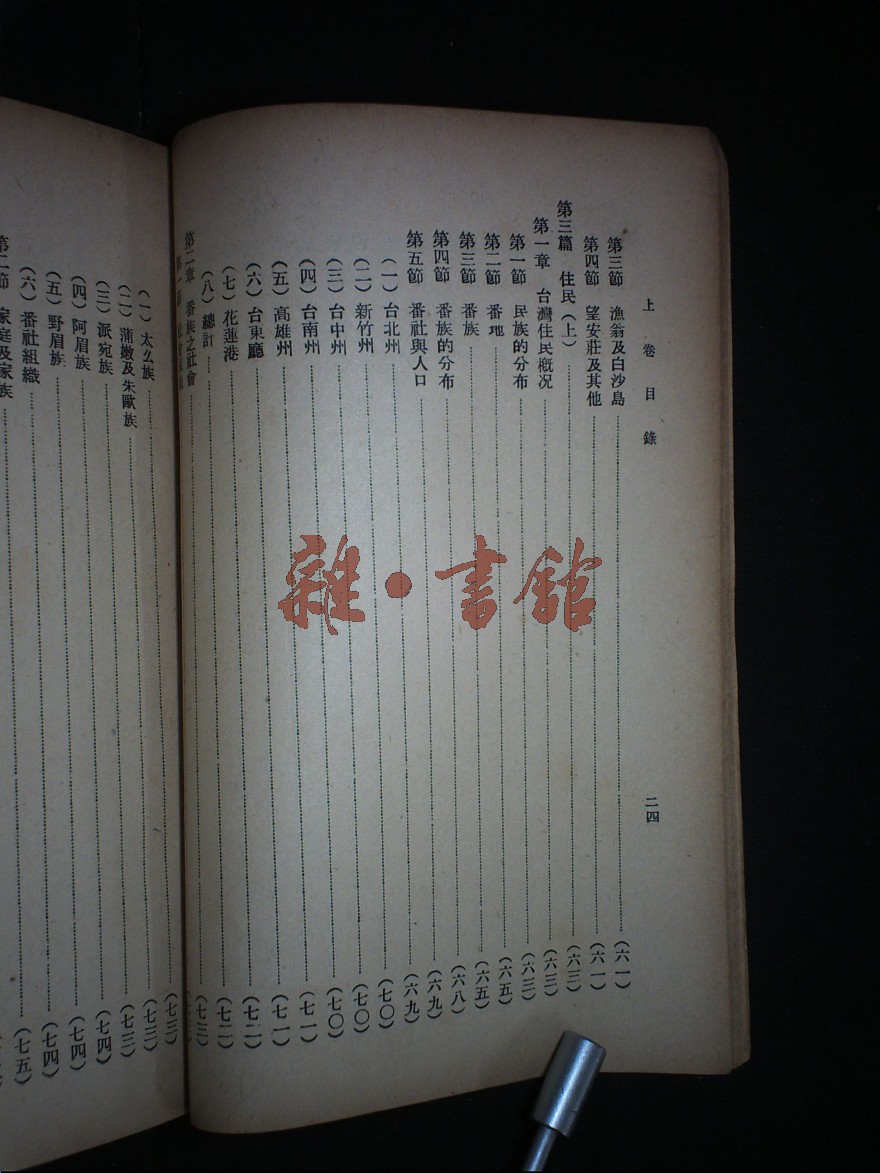 上卷目錄
二四
第三節 漁翁及白沙島（六一）
第四節 望安莊及其他（六一）
第三篇 住民（上）（六三）
第一章 台灣住民概況（六三）
第一節 民族的分布（六三）
第二節 番地（六五）
第三節 番族（六五）
第四節 番族的分布（六八）
第五節 番社與人口（六九）
（一）台北州（七〇）
（二）新竹州（七〇）
（三）台中州（七〇）
（四）台南州（七一）
（五）高雄州（七一）
（六）台東廳（七二）
（七）花蓮港（七二）
（八）總計（七三）
第二章 番族之社會
（一）太么族（七三）
（二）蒲嫩及朱歐族（七三）
（三）派宛族（七四）
（四）阿眉族（七四）
（五）野眉族（七四）
（六）番社組織（七五）
第二節 家庭及家族
雜·書館